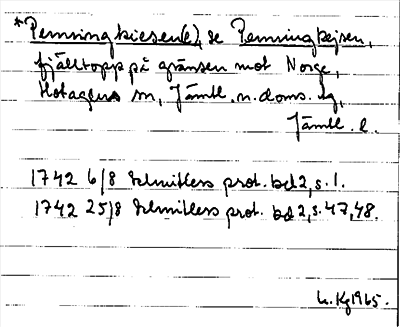 *Penningkiesen(e), se Penningkejsen,
fjälltopp på gränsen mot Norge,
Hotagens sn, Jämtl. n. doms. lg,
Jämtl. l.
1742 6/8 Schnitlers prot. bd 2, s. 1.
1742 25/8 Schnitlers prot. bd 2, s. 47, 48.
1965.